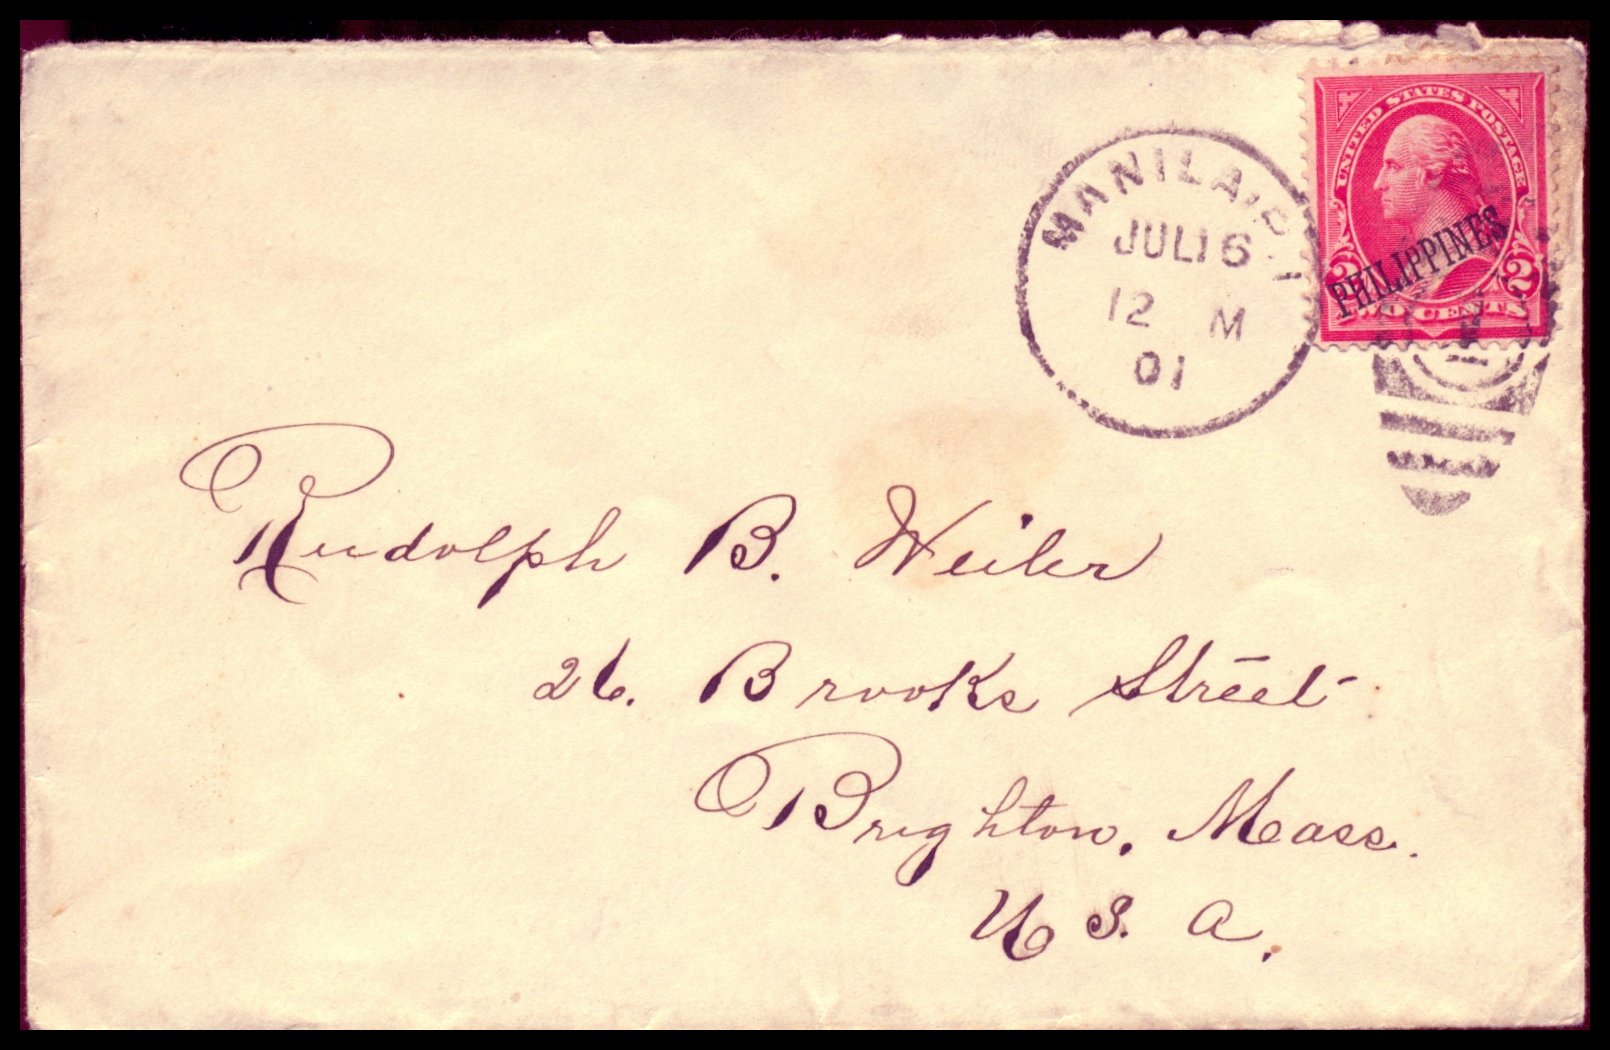 UNITED STATES POSTAGE
PHILIPPINES
2 2
TWO CENTS
MANILA, P.I.
JUL 16
12 M
01
1
Rudolph B. Weiler
26. Brooks Street
Brighton, Mass.
U S. A.